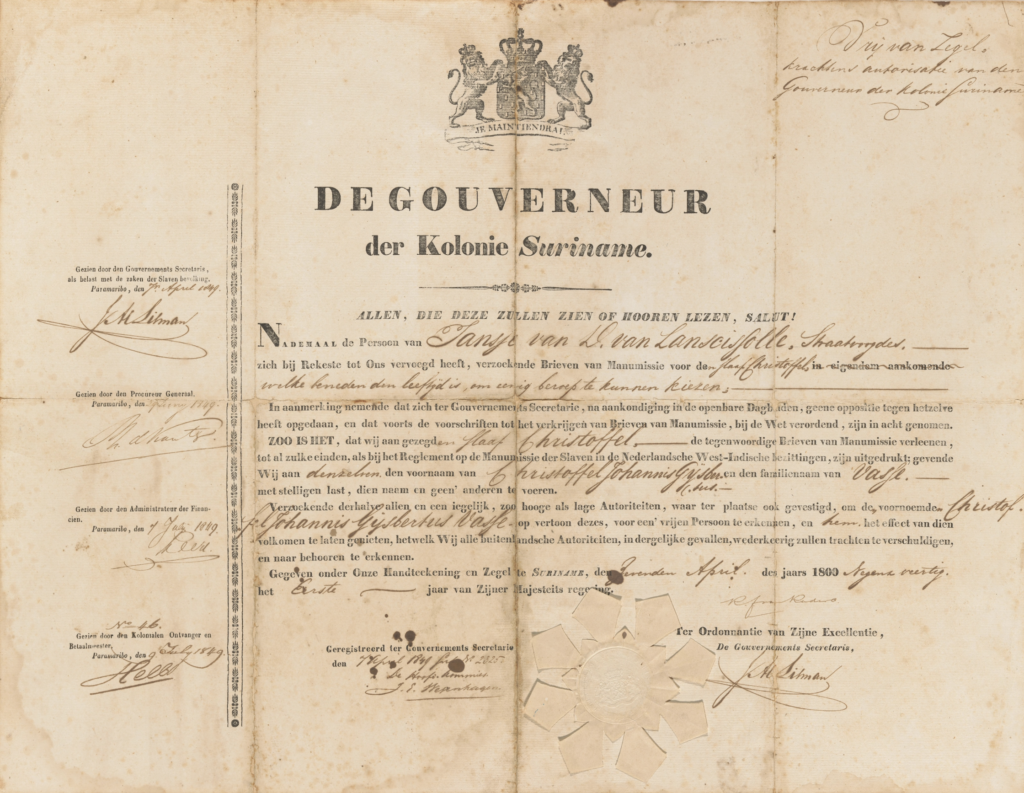 Vrij van Zegel.
krachtens autorisatie van den
Gouverneur der Kolonie Suriname
JE MAINTIENDRAI
DE GOUVERNEUR
der Kolonie Suriname.
Gezien door den Gouvernements Secretaris,
als belast met de zaken der Slaven bevolking.
Paramaribo, den 7n April 1849.
Gezien door den Procureur Generaal.
Paramaribo, den 1849
Gezien door den Administrateur der Finan-
cien.
Paramaribo, den 7 July 1849
No. 46.
Gezien door den Kolonialen Ontvanger en
Betaalmeester,
Paramaribo, den 9 July 1849
ALLEN, DIE DEZE ZULLEN ZIEN OF HOOREN LEZEN, SALUT!
NADEMAAL de Persoon van Jansje van D. van Lanscissolle, Straatvoogdes.
zich bij Rekeste tot Ons vervoegd heeft, verzoekende Brieven van Manumissie voor den slaaf Christoffel, in eigendom aankomende
welke beneden den leeftijd is, om eenig beroep te kunnen kiezen;
In aanmerking nemende dat zich ter Gouvernements Secretarie, na aankondiging in de openbare Dagbladen, geene oppositie tegen hetzelve
heeft opgedaan, en dat voorts de voorschriften tot het verkrijgen van Brieven van Manumissie, bij de Wet verordend, zijn in acht genomen.
ZOO IS HET, dat wij aan gezegden slaaf Christoffel. de tegenwoordige Brieven van Manumissie verleenen,
tot al zulke einden, als bij het Reglement op de Manumissie der Slaven in de Nederlandsche West-Indische bezittingen, zijn uitgedrukt; gevende
Wij aan denzelven den voornaam van Christoffel Johannis Gijsber- en den familienaam van Vasse.
met stelligen last, dien naam en geen' anderen te voeren.
Verzoekende derhalve allen en een iegelijk, zoo hooge als lage Autoriteiten, waar ter plaatse ook gevestigd, om de voornoemde Christof-
fel Johannis Gijsbertus Vasse. op vertoon dezes, voor een' vrijen Persoon te erkennen, en hem het effect van dien
volkomen te laten genieten, hetwelk Wij alle buitenlandsche Autoriteiten, in dergelijke gevallen, wederkeerig zullen trachten te verschuldigen,
en naar behooren te erkennen.
Gegeven onder Onze Handteekening en Zegel te SURINAME, den Zevenden April. des jaars 1800 Negen en veertig.
het Eerste jaar van Zijner Majesteits regering.
Geregistreerd ter Gouvernements Secretarie
den 7 April 1849
Ter Ordonnantie van Zijne Excellentie,
De Gouvernements Secretaris,